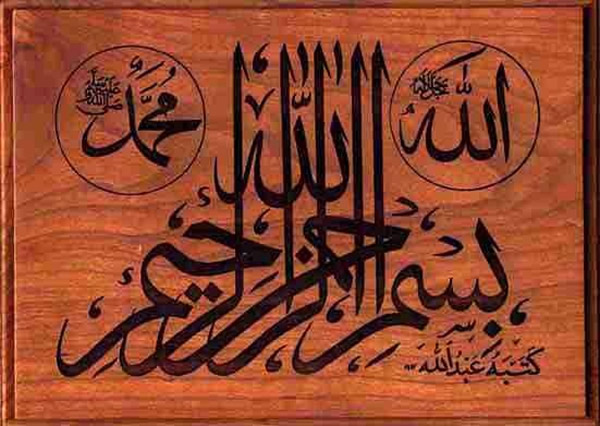 الله جل جلاله
محمد صلى الله عليه وسلم
بسم الله الرحمن الرحيم
كتبه عبد الله